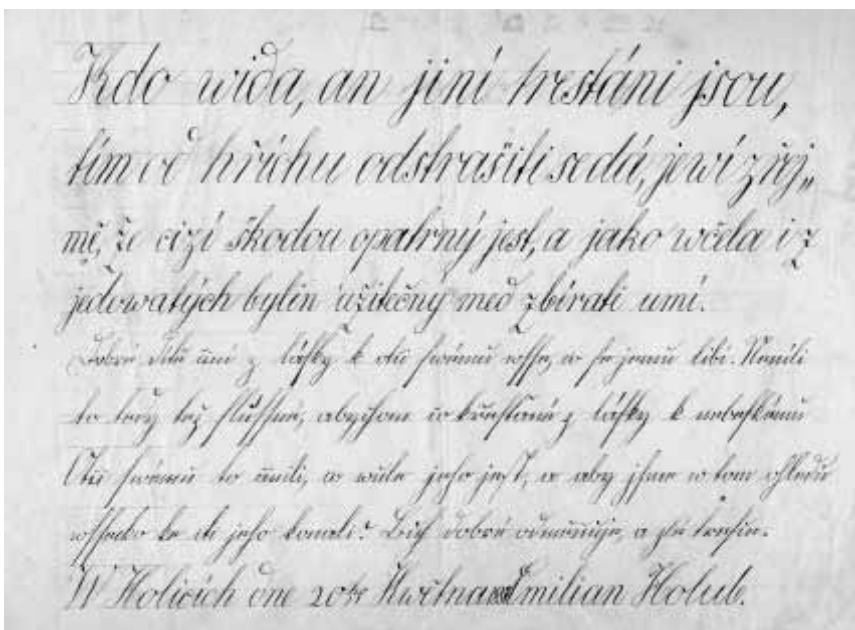 Kdo wida, an jiní trestáni jsou,
tím od hříchu odstrašiti se dá, jewí zřej„
mě, že cizí škodou opatrný jest, a jako wčela i z
jedowatých bylin užitečný med zbírati umí.
Dobré dítě z lásky k otci swému wsse, co se jemu libí. Neníli
to tedy též slussné, abychom co křesťané z lásky k nebeskému
Otci swému to činili, co wůle jeho jest, a aby jsme w tom ohledu
wssecko ke cti jeho konali? Bůh dobré odměňuje, a zlé tresce.
W Holicích dne 20ho Kwětna Emilian Holub.